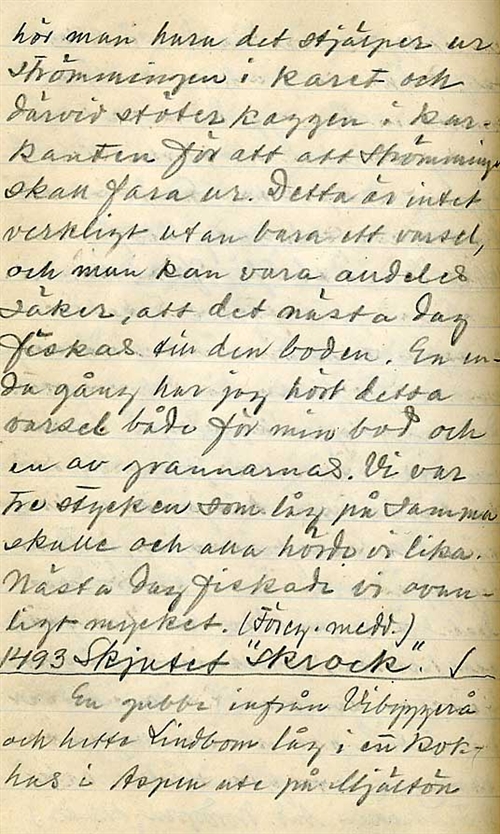 hör man huru det stjälper ur
strömmingen i karet och
därvid stöter kaggen i kar-
kanten för att att strömming
skall fara ur. Detta är intet
verkligt utan bara ett varsel,
och man kan vara andeles
säker, att det nästa dag
fiskas till den boden. En en-
da gång har jag hört detta
varsel både för min bod och
en av grannarnas. Vi var
tre stycken som låg på samma
skulle och alla hörde vi lika.
Nästa dag fiskade vi ovan-
ligt mycket. (Föreg. medd.)
1493 Skjutet "Skrock".
En gubbe infrån Vibyggerå
och hette Lindbom låg i en kok-
hus i Aspen ute på Mjältön